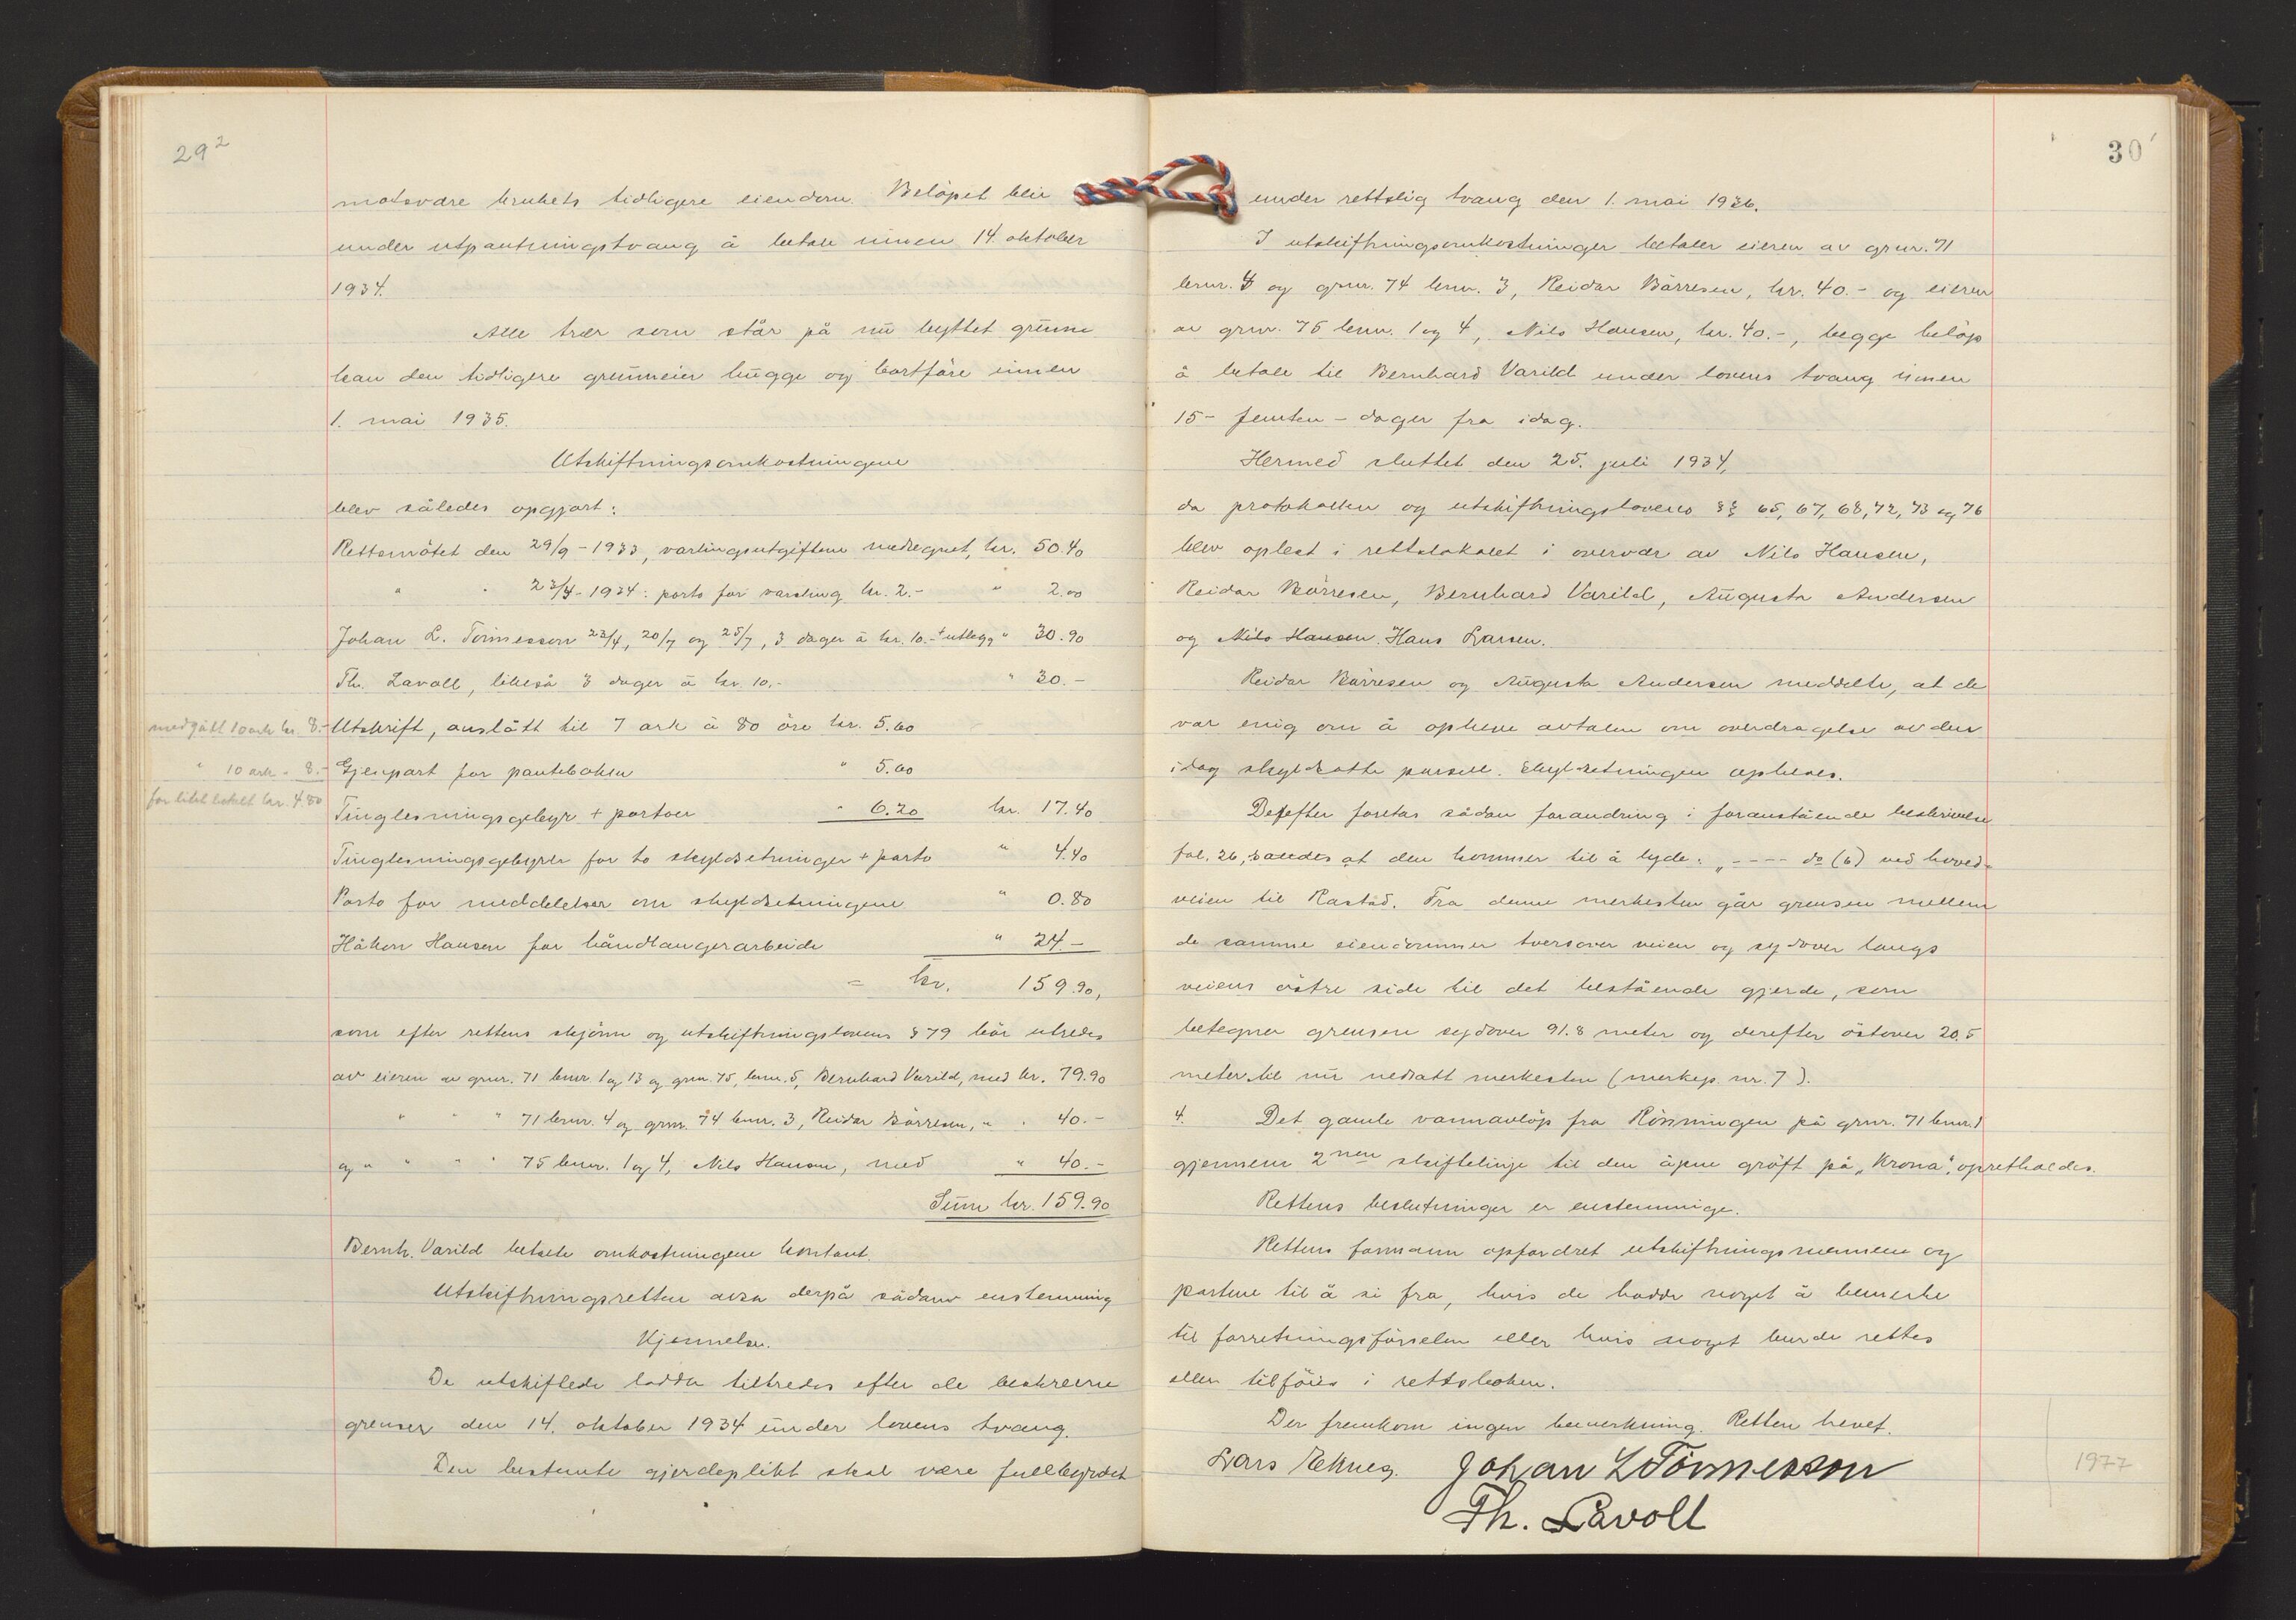 29²
motsvare brukets tidligere eiendom. Beløpet blir
under utpantningstvang å betale innen 14. oktober
1934.
Alle trær som står på nu byttet grunn
kan den tidligere grunneier hugge og bortføre innen
1. mai 1935.
Utskiftningsomkostningene
blev således opgjort:
Rettsmøtet den 29/9-1933, varslingsutgiftene medregnet, kr. 50.40
" " 23/4-1934: porto for varsling kr. 2.- " 2.00
Johan L. Tönnesson 23/4, 20/7 og 25/7, 3 dager à kr. 10.- + utlegg " 30.90
Th. Lavoll, likeså 3 dager à kr. 10.- " 30.-
medgått 10 ark kr. 8.- Utskrift, anslått til 7 ark à 80 øre kr. 5.60
" 10 ark " 8.- Gjenpart for panteboken " 5.60
for litet betalt kr. 4.80 Tinglesningsgebyr + portoer " 6.20 kr. 17.40
Tinglesningsgebyrer for to skyldsetninger + porto " 4.40
Porto for meddelelser om skyldsetningene " 0.80
Håkon Hansen for håndlangerarbeide " 24.-
= kr. 159.90,
som efter rettens skjønn og utskiftningslovens § 79 bør utredes
av eieren av gnr. 71 bnr. 1 og 13 og gnr. 75, bnr. 5, Bernhard Varild, med kr. 79.90
" " " 71 bnr. 4 og gnr. 74 bnr. 3, Reidar Börresen, " " 40.-
og " " " " 75 bnr. 1 og 4, Nils Hansen, med " 40.-
Sum kr. 159.90
Bernh. Varild betalte omkostningene kontant.
Utskiftningsretten avsa derpå sådann enstemmig
Kjennelse.
De utskiftede lodder tiltredes efter de beskrevne
grenser den 14. oktober 1934 under lovens tvang.
Den bestemte gjerdeplikt skal være fullbyrdet
30
under rettslig tvang den 1. mai 1936.
I utskiftningsomkostninger betaler eieren av gnr. 71
bnr. 4 og gnr. 74 bnr. 3, Reidar Börresen, kr. 40.- og eieren
av gnr. 75 bnr. 1 og 4, Nils Hansen, kr. 40.-, begge beløp
å betale til Bernhard Varild under lovens tvang innen
15 - femten - dager fra idag.
Hermed sluttet den 25. juli 1934,
da protokollen og utskiftningslovens §§ 65, 67, 68, 72, 73 og 76
blev oplest i rettslokalet i overvær av Nils Hansen,
Reidar Börresen, Bernhard Varild, Augusta Andersen
og Nils Hansen. Hans Larsen.
Reidar Börresen og Augusta Andersen meddelte, at de
var enig om å opheve avtalen om overdragelse av den
idag skyldsatte parsell. Skyldsetningen opheves.
Derefter foretas sådan forandring i foranstående beskrivelse
fol. 26, således at den kommer til å lyde: „---- do (6) ved hoved-
veien til Rastad. Fra denne merkesten går grensen mellem
de samme eiendommer tversover veien og sydover langs
veiens östre side til det bestående gjerde, som
betegner grensen sydover 91.8 meter og derefter östover 20.5
meter til nu nedsatt merkesten (merkep. nr. 7).
4. Det gamle vannavløp fra Rönningen på gnr. 71 bnr. 1
gjennem 2nen skiftelinje til den åpne gröft på „Krona", opretholdes.
Rettens beslutninger er enstemmige.
Rettens formann opfordret utskiftningsmennene og
partene til å si fra, hvis de hadde noget å bemerke
til forretningsførselen eller hvis noget burde rettes
eller tilføies i rettsboken.
Der fremkom ingen bemerkning. Retten hevet.
Lars Johan L Tönnesson
Th. Lavoll
1977